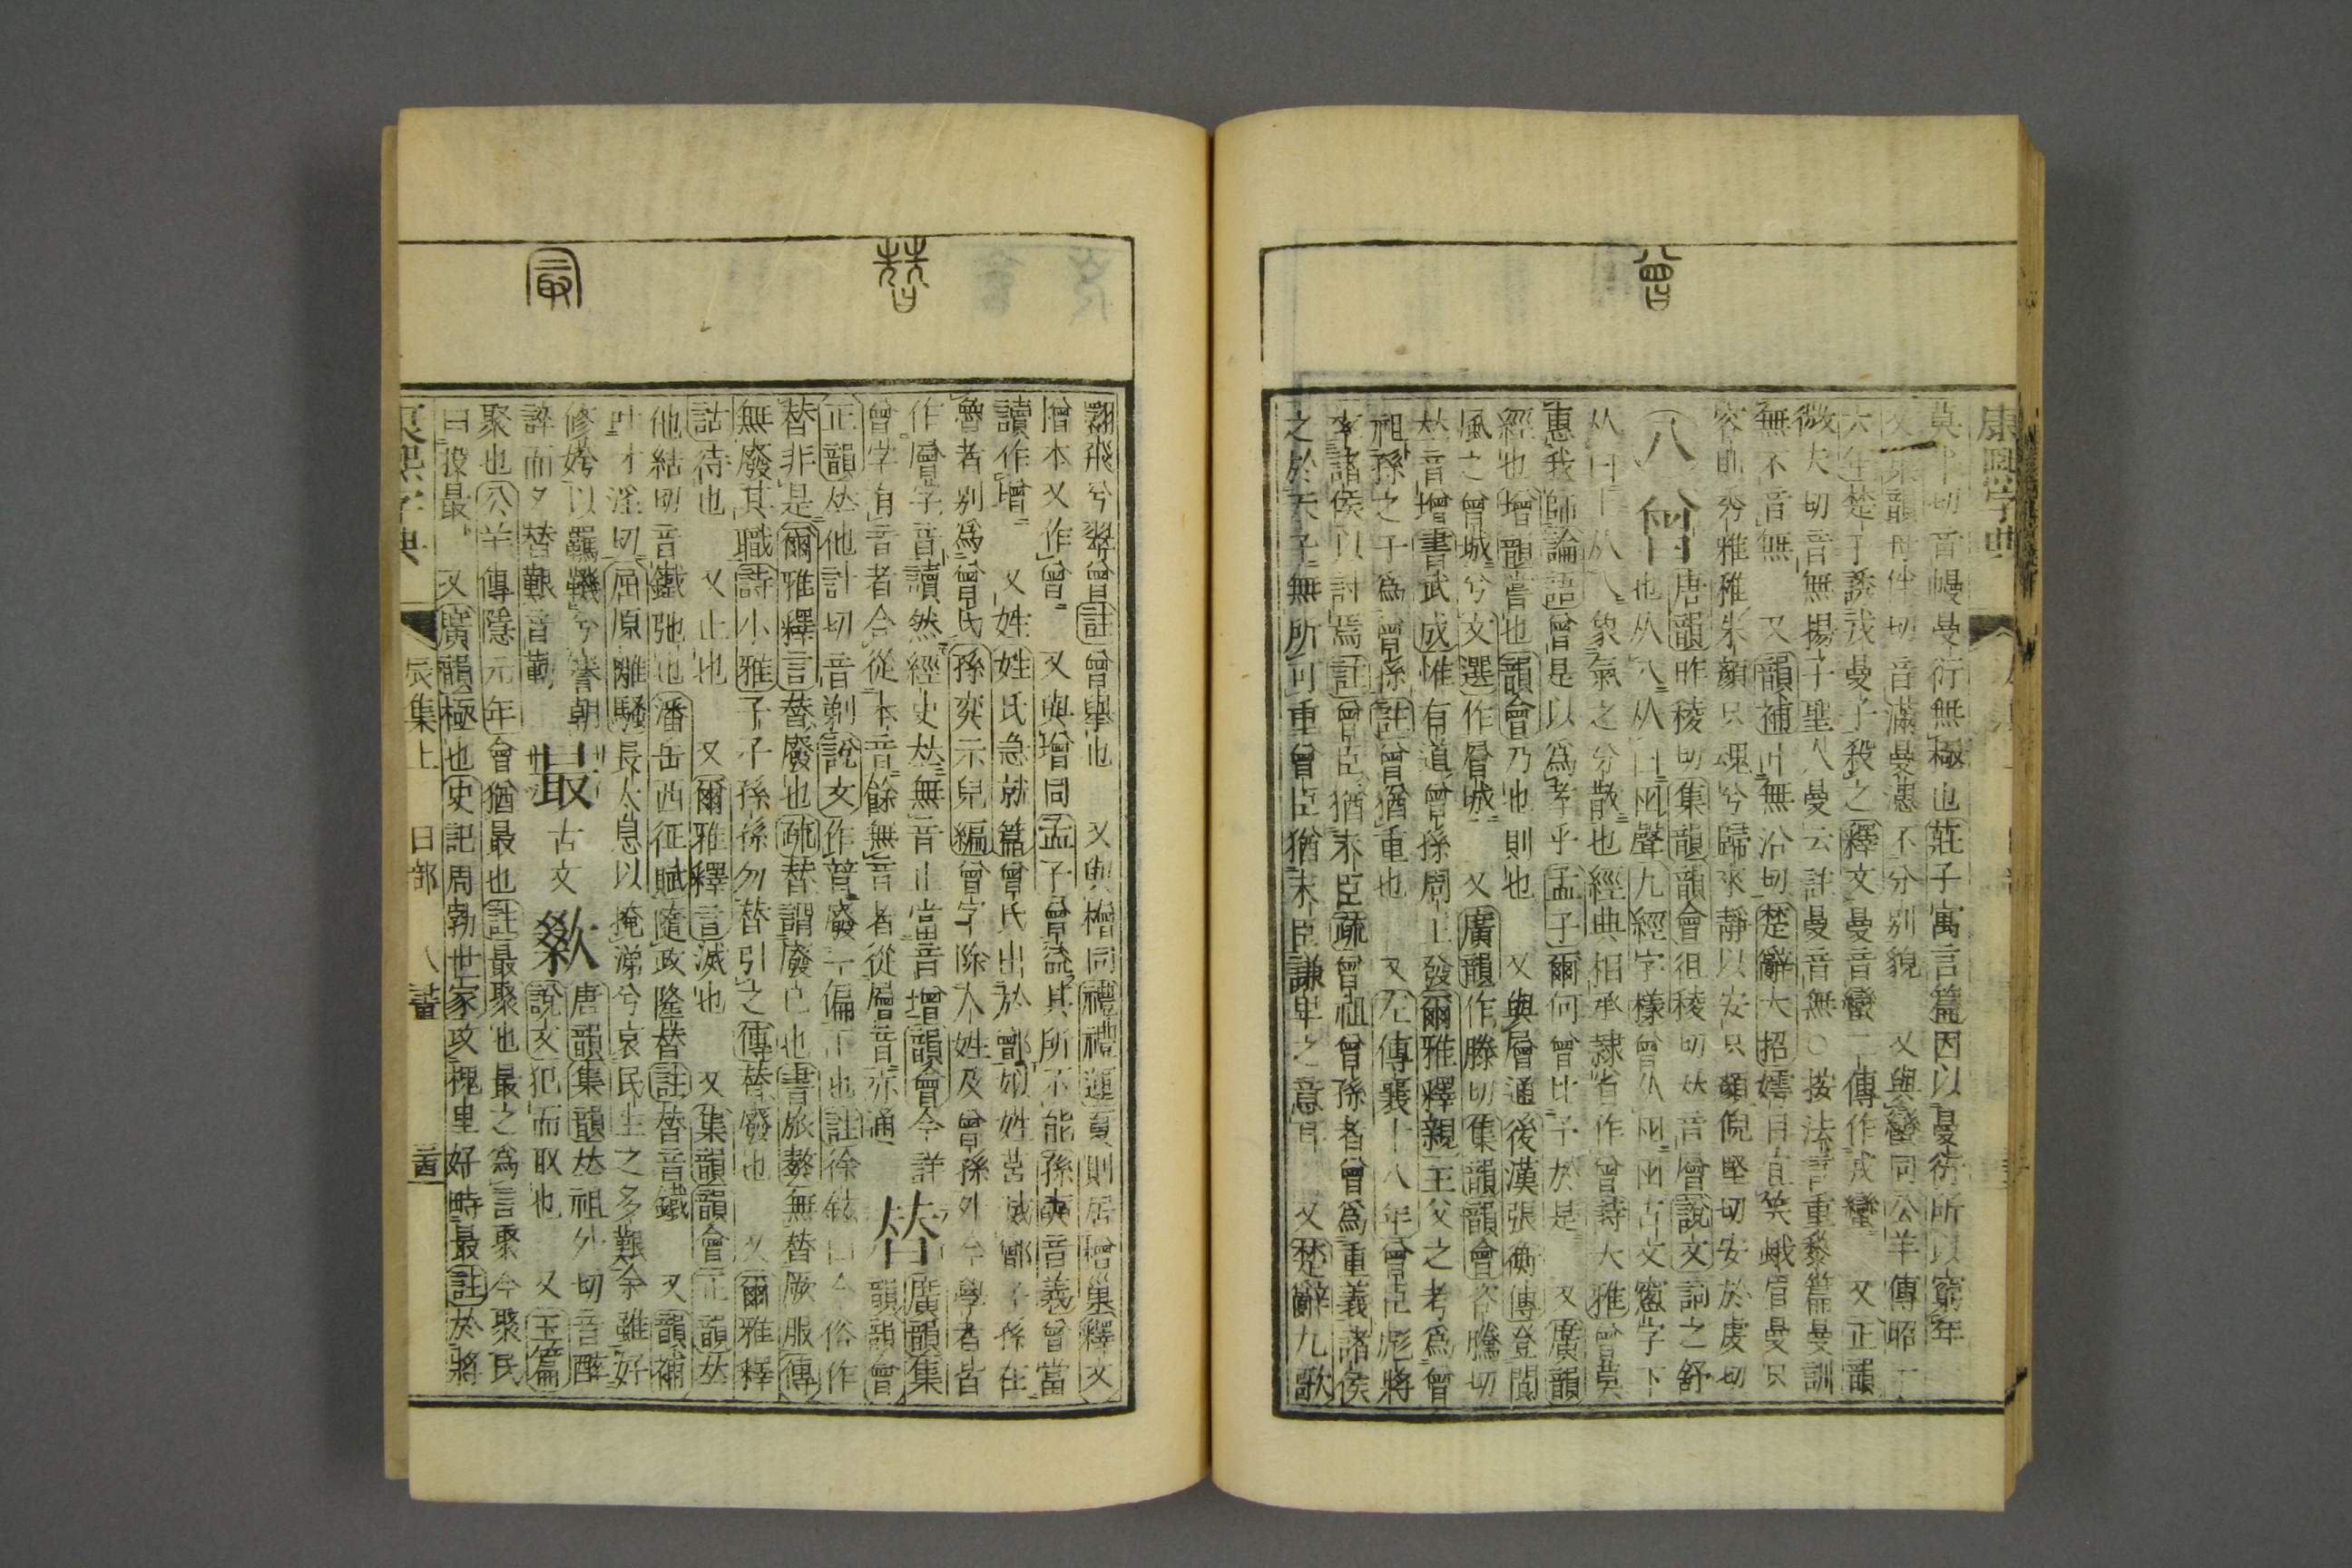 曾
康熙字典
莫半切音幔曼衍無極也莊子寓言篇因以曼衍所以窮年
又集韻母伴切音滿曼漶不分別貌 又與蠻同公羊傳昭十
六年楚子誘戎曼子殺之釋文曼音蠻二傳作戎蠻 又正韻
微夫切音無揚子聖人曼云註曼音無○按法言重黎篇曼訓
無不音無 又韻補叶無沿切楚辭大招嫮目宜笑蛾眉曼只
容則秀雅稚朱顏只魂兮歸來靜以安只顏倪堅切安於虔切
八曾唐韻昨稜切集韻韻會徂稜切𠀤音層說文詞之舒
也从八从曰囪聲九經字樣曾从囪囪古文窻字下
从曰上从八象氣之分散也經典相承隷省作曾詩大雅曾莫
惠我師論語曾是以為孝乎孟子爾何曾比予於是 又廣韻
經也增韻嘗也韻會乃也則也 又與層通後漢張衡傳登閬
風之曾城兮文選作層城 又廣韻作滕切集韻韻會咨騰切
𠀤音增書武成惟有道曾孫周王發爾雅釋親王父之考為曾
祖孫之子為曾孫註曾猶重也 又左傳襄十八年曾臣彪將
率諸侯以討焉註曾臣猶末臣疏曾祖曾孫者曾為重義諸侯
之於天子無所可重曾臣猶末臣謙𤰞之意耳 又楚辭九歌
替
最
翾飛兮翠曾註曾舉也 又與橧同禮禮運夏則居橧巢釋文
橧本又作曾 又與增同孟子曾益其所不能孫奭音義曾當
讀作增 又姓姓氏急就篇曾氏出於鄫姒姓莒滅鄫子孫在
魯者別為曾氏孫奕示兒編曾字除人姓及曾孫外今學者皆
作層字音讀然經史𠀤無音止當音增韻會今詳
曾字有音者合從本音餘無音者從層音亦通
替廣韻集韻韻會
正韻𠀤他計切音剃說文作暜廢一偏下也註徐鉉曰今俗作
替非是爾雅釋言替廢也疏替謂廢已也書旅獒無替厥服傳
無廢其職詩小雅子子孫孫勿替引之傳替廢也 又爾雅釋
詁待也 又止也 又爾雅釋言滅也 又集韻韻會正韻𠀤
他結切音鐵弛也潘岳西征賦隨政隆替註替音鐵 又韻補
叶才淫切屈原離騷長太息以掩涕兮哀民生之多艱余雖好
修姱以羈䩭兮謇朝
誶而夕替艱音勤
最古文
唐韻集韻𠀤祖外切音醉
說文犯而取也 又玉篇
聚也公羊傳隱元年會猶最也註最聚也最之為言聚今聚民
曰投最 又廣韻極也史記周勃世家攻槐里好畤最註於將
康熙字典 辰集上 日部 八畫